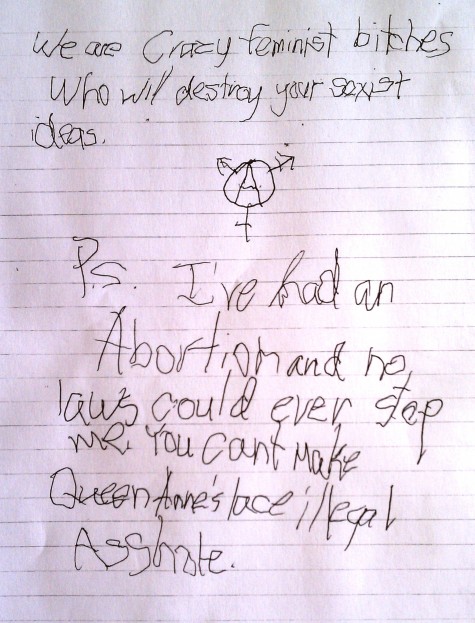 We are Crazy feminist bitches
Who will destroy your sexist
ideas.
A
P.s. I've had an
Abortion and no
laws could ever stop
me. You can't make
Queen Anne's lace illegal
Asshole.